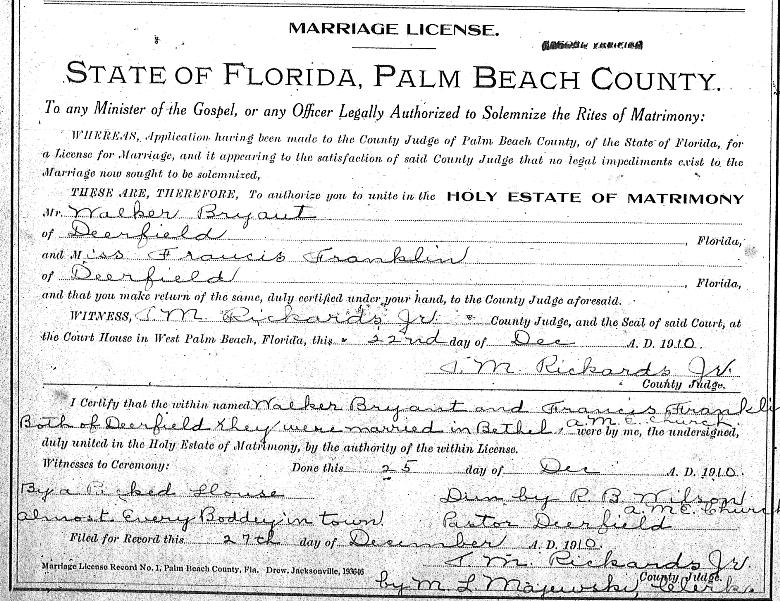 MARRIAGE LICENSE.
STATE OF FLORIDA, PALM BEACH COUNTY.
To any Minister of the Gospel, or any Officer Legally Authorized to Solemnize the Rites of Matrimony:
WHEREAS, Application having been made to the County Judge of Palm Beach County, of the State of Florida, for
a License for Marriage, and it appearing to the satisfaction of said County Judge that no legal impediments exist to the
Marriage now sought to be solemnized,
THESE ARE, THEREFORE, To authorize you to unite in the HOLY ESTATE OF MATRIMONY
Mr. Walker Bryant
of Deerfield, Florida,
and Miss Francis Franklin
of Deerfield, Florida,
and that you make return of the same, duly certified under your hand, to the County Judge aforesaid.
WITNESS, T. M. Rickards Jr. County Judge, and the Seal of said Court, at
the Court House in West Palm Beach, Florida, this 22nd day of Dec A. D. 1910.
T. M. Rickards Jr.
County Judge.
I Certify that the within named Walker Bryant and Francis Frankli
Both of Deerfield they were married in Bethel A.M.E. Church were by me, the undersigned,
duly united in the Holy Estate of Matrimony, by the authority of the within License.
Witnesses to Ceremony: Done this 25 day of Dec A. D. 1910.
By a Picked House Dun by R. B. Wilson
almost Every Boddey in town Pastor Deerfield A.M.E. Church
Filed for Record this 27th day of December A. D. 1910.
T. M. Rickards Jr.
Marriage License Record No. 1, Palm Beach County, Fla. Drew, Jacksonville, 193646 County Judge.
by M. L. Majewski, Clerk.